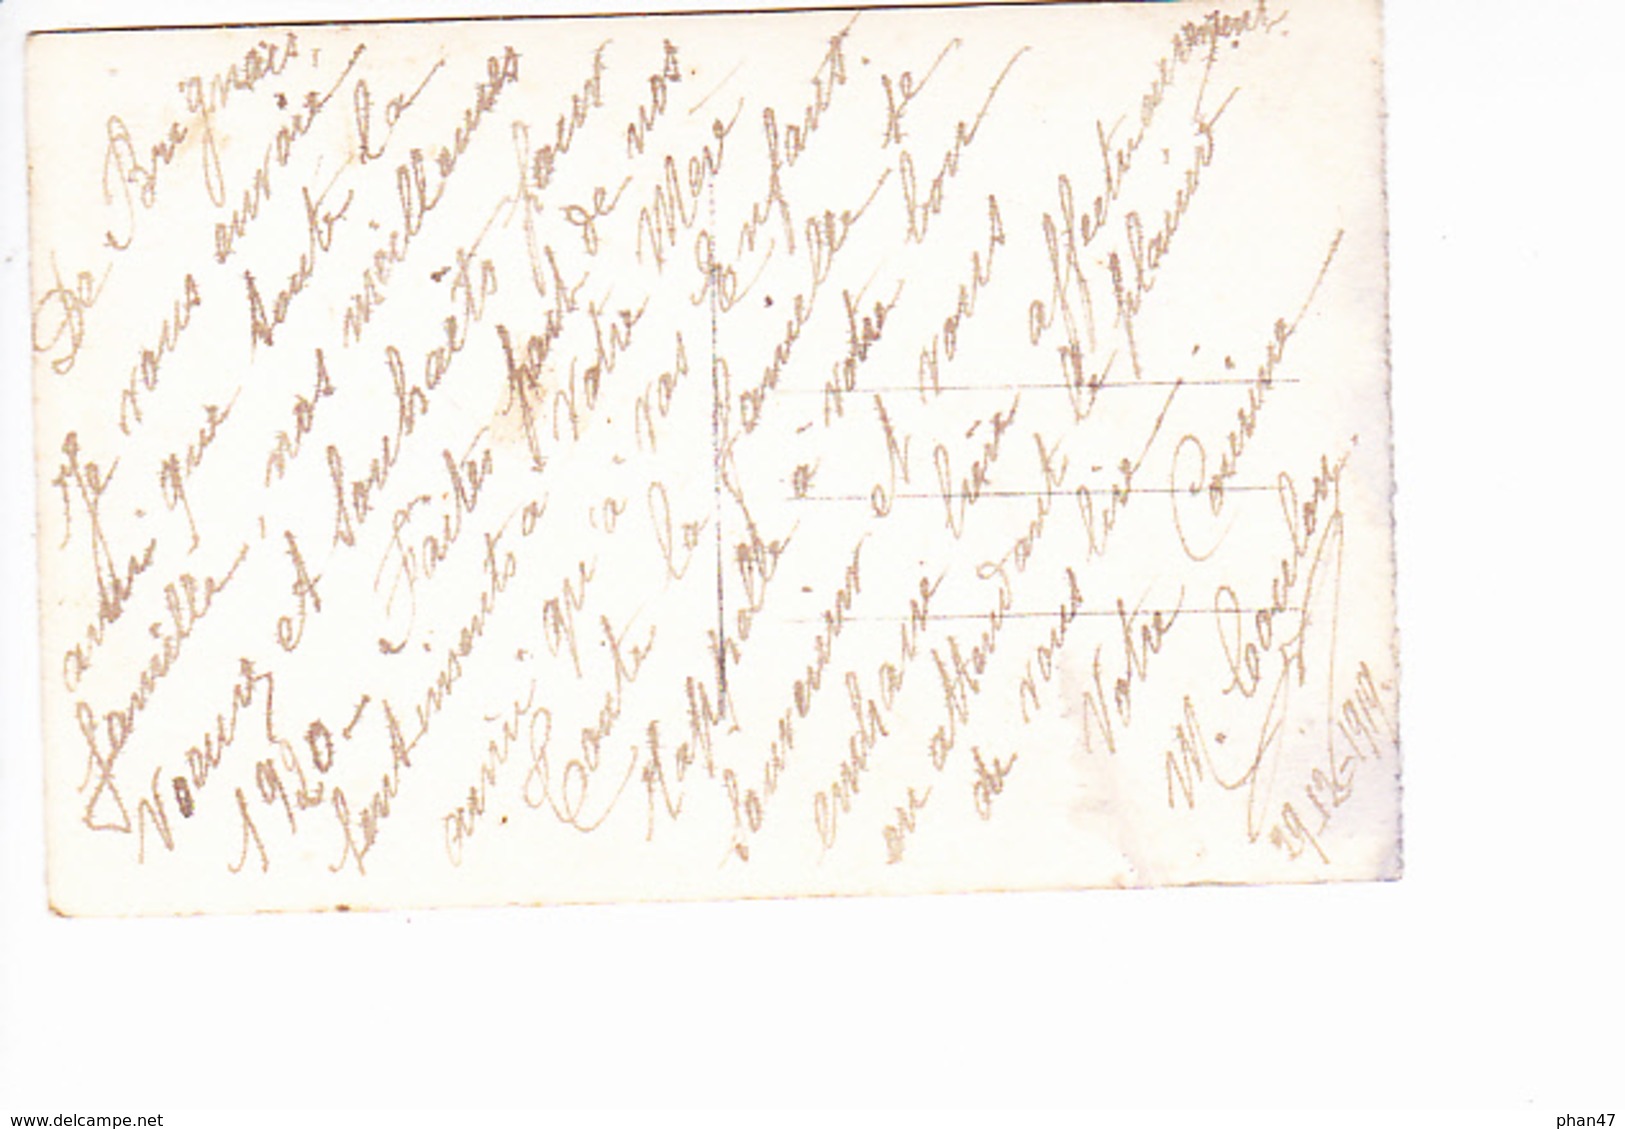 De Brignais,
Je vous envoie
ainsi que toute la
famille, nos meilleures
Voeux et souhaits pour
1920 - Faites part de nos
sentiments à Votre Mère
ainsi qu'à vos Enfants.
Toute la famille se
Rappelle à votre bon
souvenir et vous
embrasse bien affectueusement
en attendant le plaisir
de vous lire
Votre Cousine
M. Coulon
29-12-1919.
www.delcampe.net
phan47